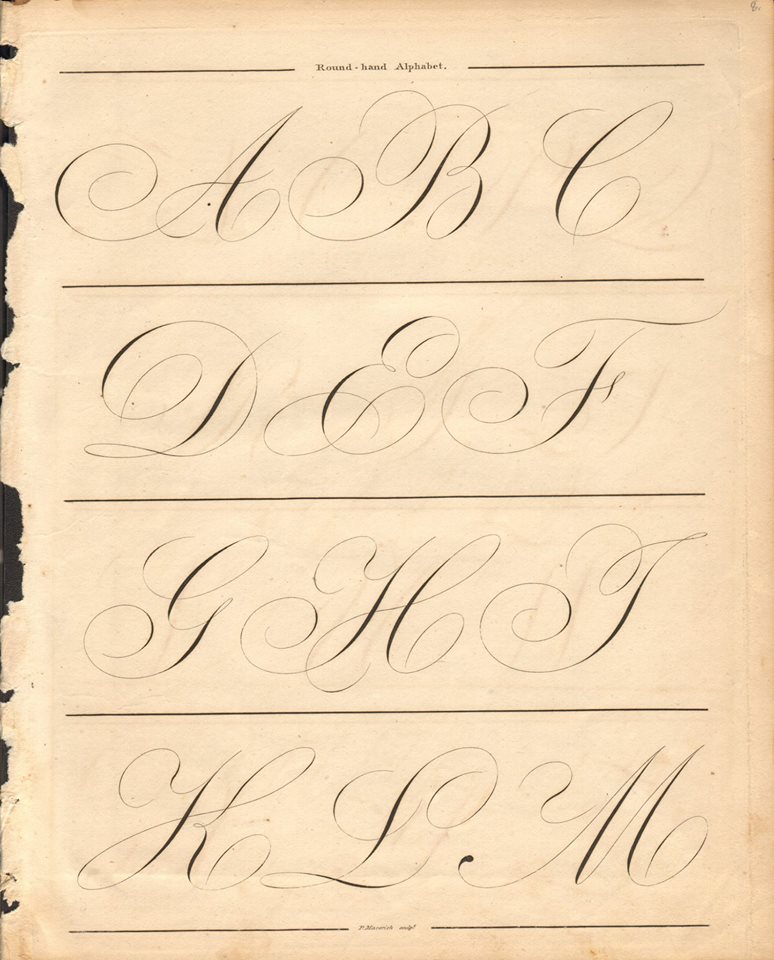 Round-hand Alphabet.
A B C
D E F
G H I
K L M
P. Maverick sculpt